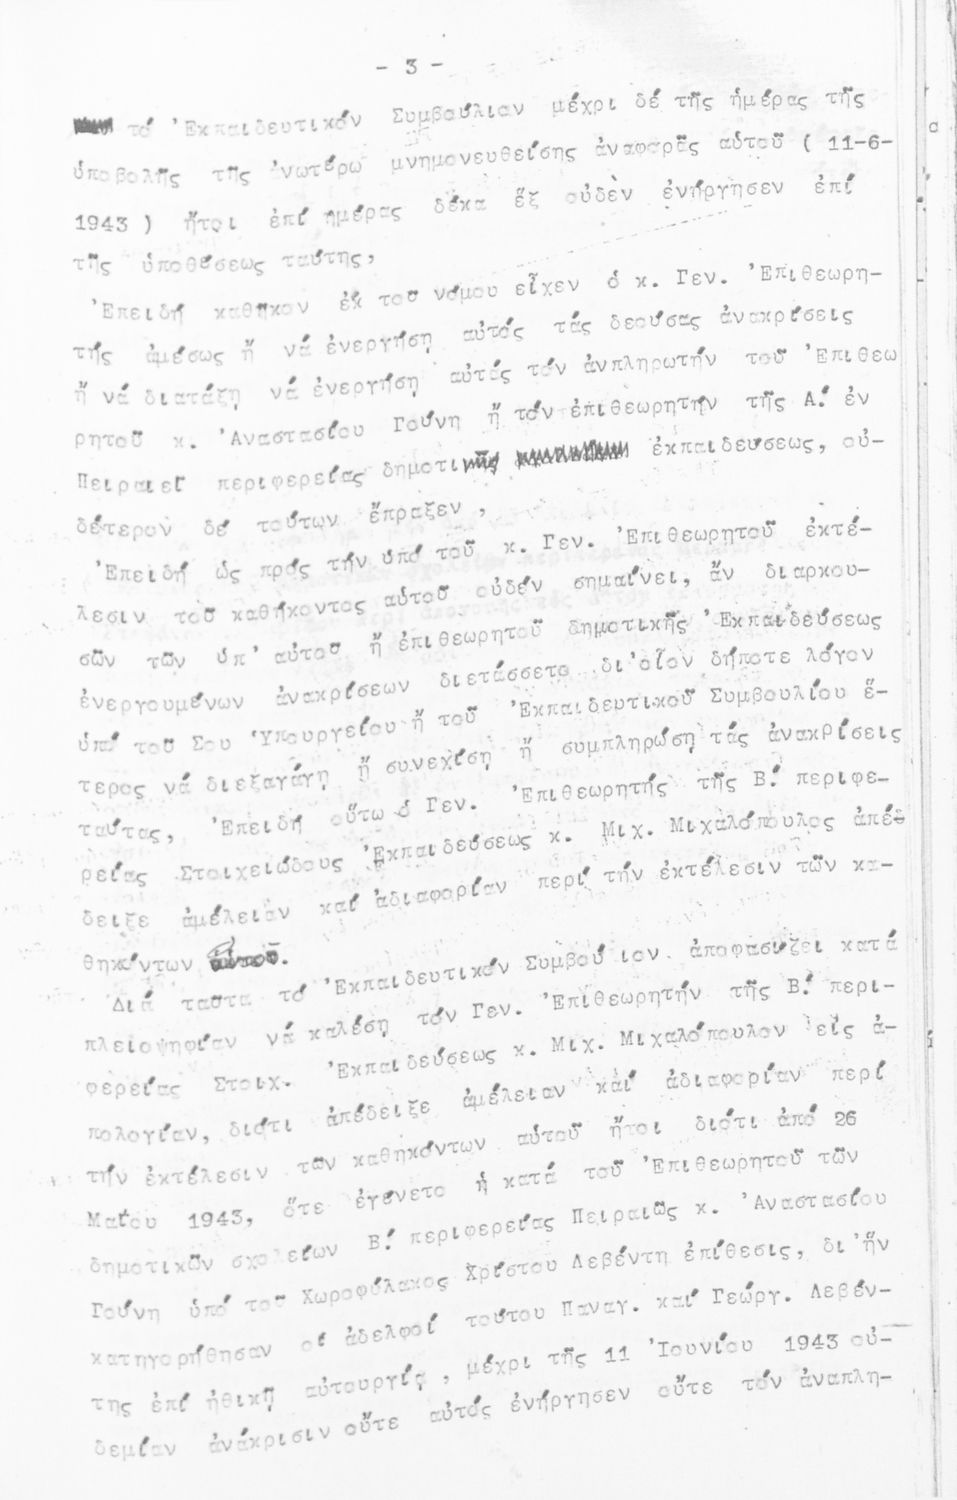 - 3 -
τό Ἐκπαιδευτικόν Συμβούλιον μέχρι δέ τῆς ἡμέρας τῆς
ὑποβολῆς τῆς ἀνωτέρω μνημονευθείσης ἀναφορᾶς αὐτοῦ ( 11-6-
1943 ) ἤτοι ἐπί ἡμέρας δέκα ἕξ οὐδὲν ἐνήργησεν ἐπί
τῆς ὑποθέσεως ταύτης,
Ἐπειδή καθῆκον ἐκ τοῦ νόμου εἶχεν ὁ κ. Γεν. Ἐπιθεωρη-
τής ἀμέσως ἤ νά ἐνεργήσῃ αὐτός τάς δεούσας ἀνακρίσεις
ἤ νά διατάξῃ νά ἐνεργήσῃ αὐτάς τόν ἀνπληρωτήν τοῦ Ἐπιθεω
ρητοῦ κ. Ἀναστασίου Γούνη ἤ τόν ἐπιθεωρητήν τῆς Α! ἐν
Πειραιεῖ περιφερείας δημοτικῆς ἐκπαιδεύσεως, οὐ-
δέτερον δέ τούτων ἔπραξεν,
Ἐπειδή ὡς πρός τήν ὑπό τοῦ κ. Γεν. Ἐπιθεωρητοῦ ἐκτέ-
λεσιν τοῦ καθήκοντος αὐτοῦ οὐδέν σημαίνει, ἄν διαρκου-
σῶν τῶν ὑπ' αὐτοῦ ἤ ἐπιθεωρητοῦ δημοτικῆς Ἐκπαιδεύσεως
ἐνεργουμένων ἀνακρίσεων διετάσσετο δι'οἷον δήποτε λόγον
ὑπό τοῦ Σου Ὑπουργείου ἤ τοῦ Ἐκπαιδευτικοῦ Συμβουλίου ἕ-
τερος νά διεξαγάγῃ ἤ συνεχίσῃ ἤ συμπληρώσῃ τάς ἀνακρίσεις
ταύτας, Ἐπειδή οὕτω ὁ Γεν. Ἐπιθεωρητής τῆς Β! περιφε-
ρείας Στοιχειώδους Ἐκπαιδεύσεως κ. Μιχ. Μιχαλόπουλος ἀπέ
δειξε ἀμέλειαν καί ἀδιαφορίαν περί τήν ἐκτέλεσιν τῶν κα-
θηκόντων αὐτοῦ.
Διά ταῦτα τό Ἐκπαιδευτικόν Συμβού ιον ἀποφασίζει κατά
πλειοψηφίαν νά καλέσῃ τόν Γεν. Ἐπιθεωρητήν τῆς Β! περι-
φερείας Στοιχ. Ἐκπαιδεύσεως κ. Μιχ. Μιχαλόπουλον εἰς ἀ-
πολογίαν, διότι ἀπέδειξε ἀμέλειαν καί ἀδιαφορίαν περί
τήν ἐκτέλεσιν τῶν καθηκόντων αὐτοῦ ἤτοι διότι ἀπό 26
Μαΐου 1943, ὅτε ἐγένετο ἡ κατά τοῦ Ἐπιθεωρητοῦ τῶν
δημοτικῶν σχολείων Β! περιφερείας Πειραιῶς κ. Ἀναστασίου
Γούνη ὑπό τοῦ Χωροφύλακος Χρίστου Λεβέντη ἐπίθεσις, δι'ἥν
κατηγορήθησαν οἱ ἀδελφοί τούτου Παναγ. καί Γεώργ. Λεβέν-
της ἐπί ἠθικῇ αὐτουργίᾳ, μέχρι τῆς 11 Ἰουνίου 1943 οὐ-
δεμίαν ἀνάκρισιν οὔτε αὐτός ἐνήργησεν οὔτε τόν ἀναπλη-